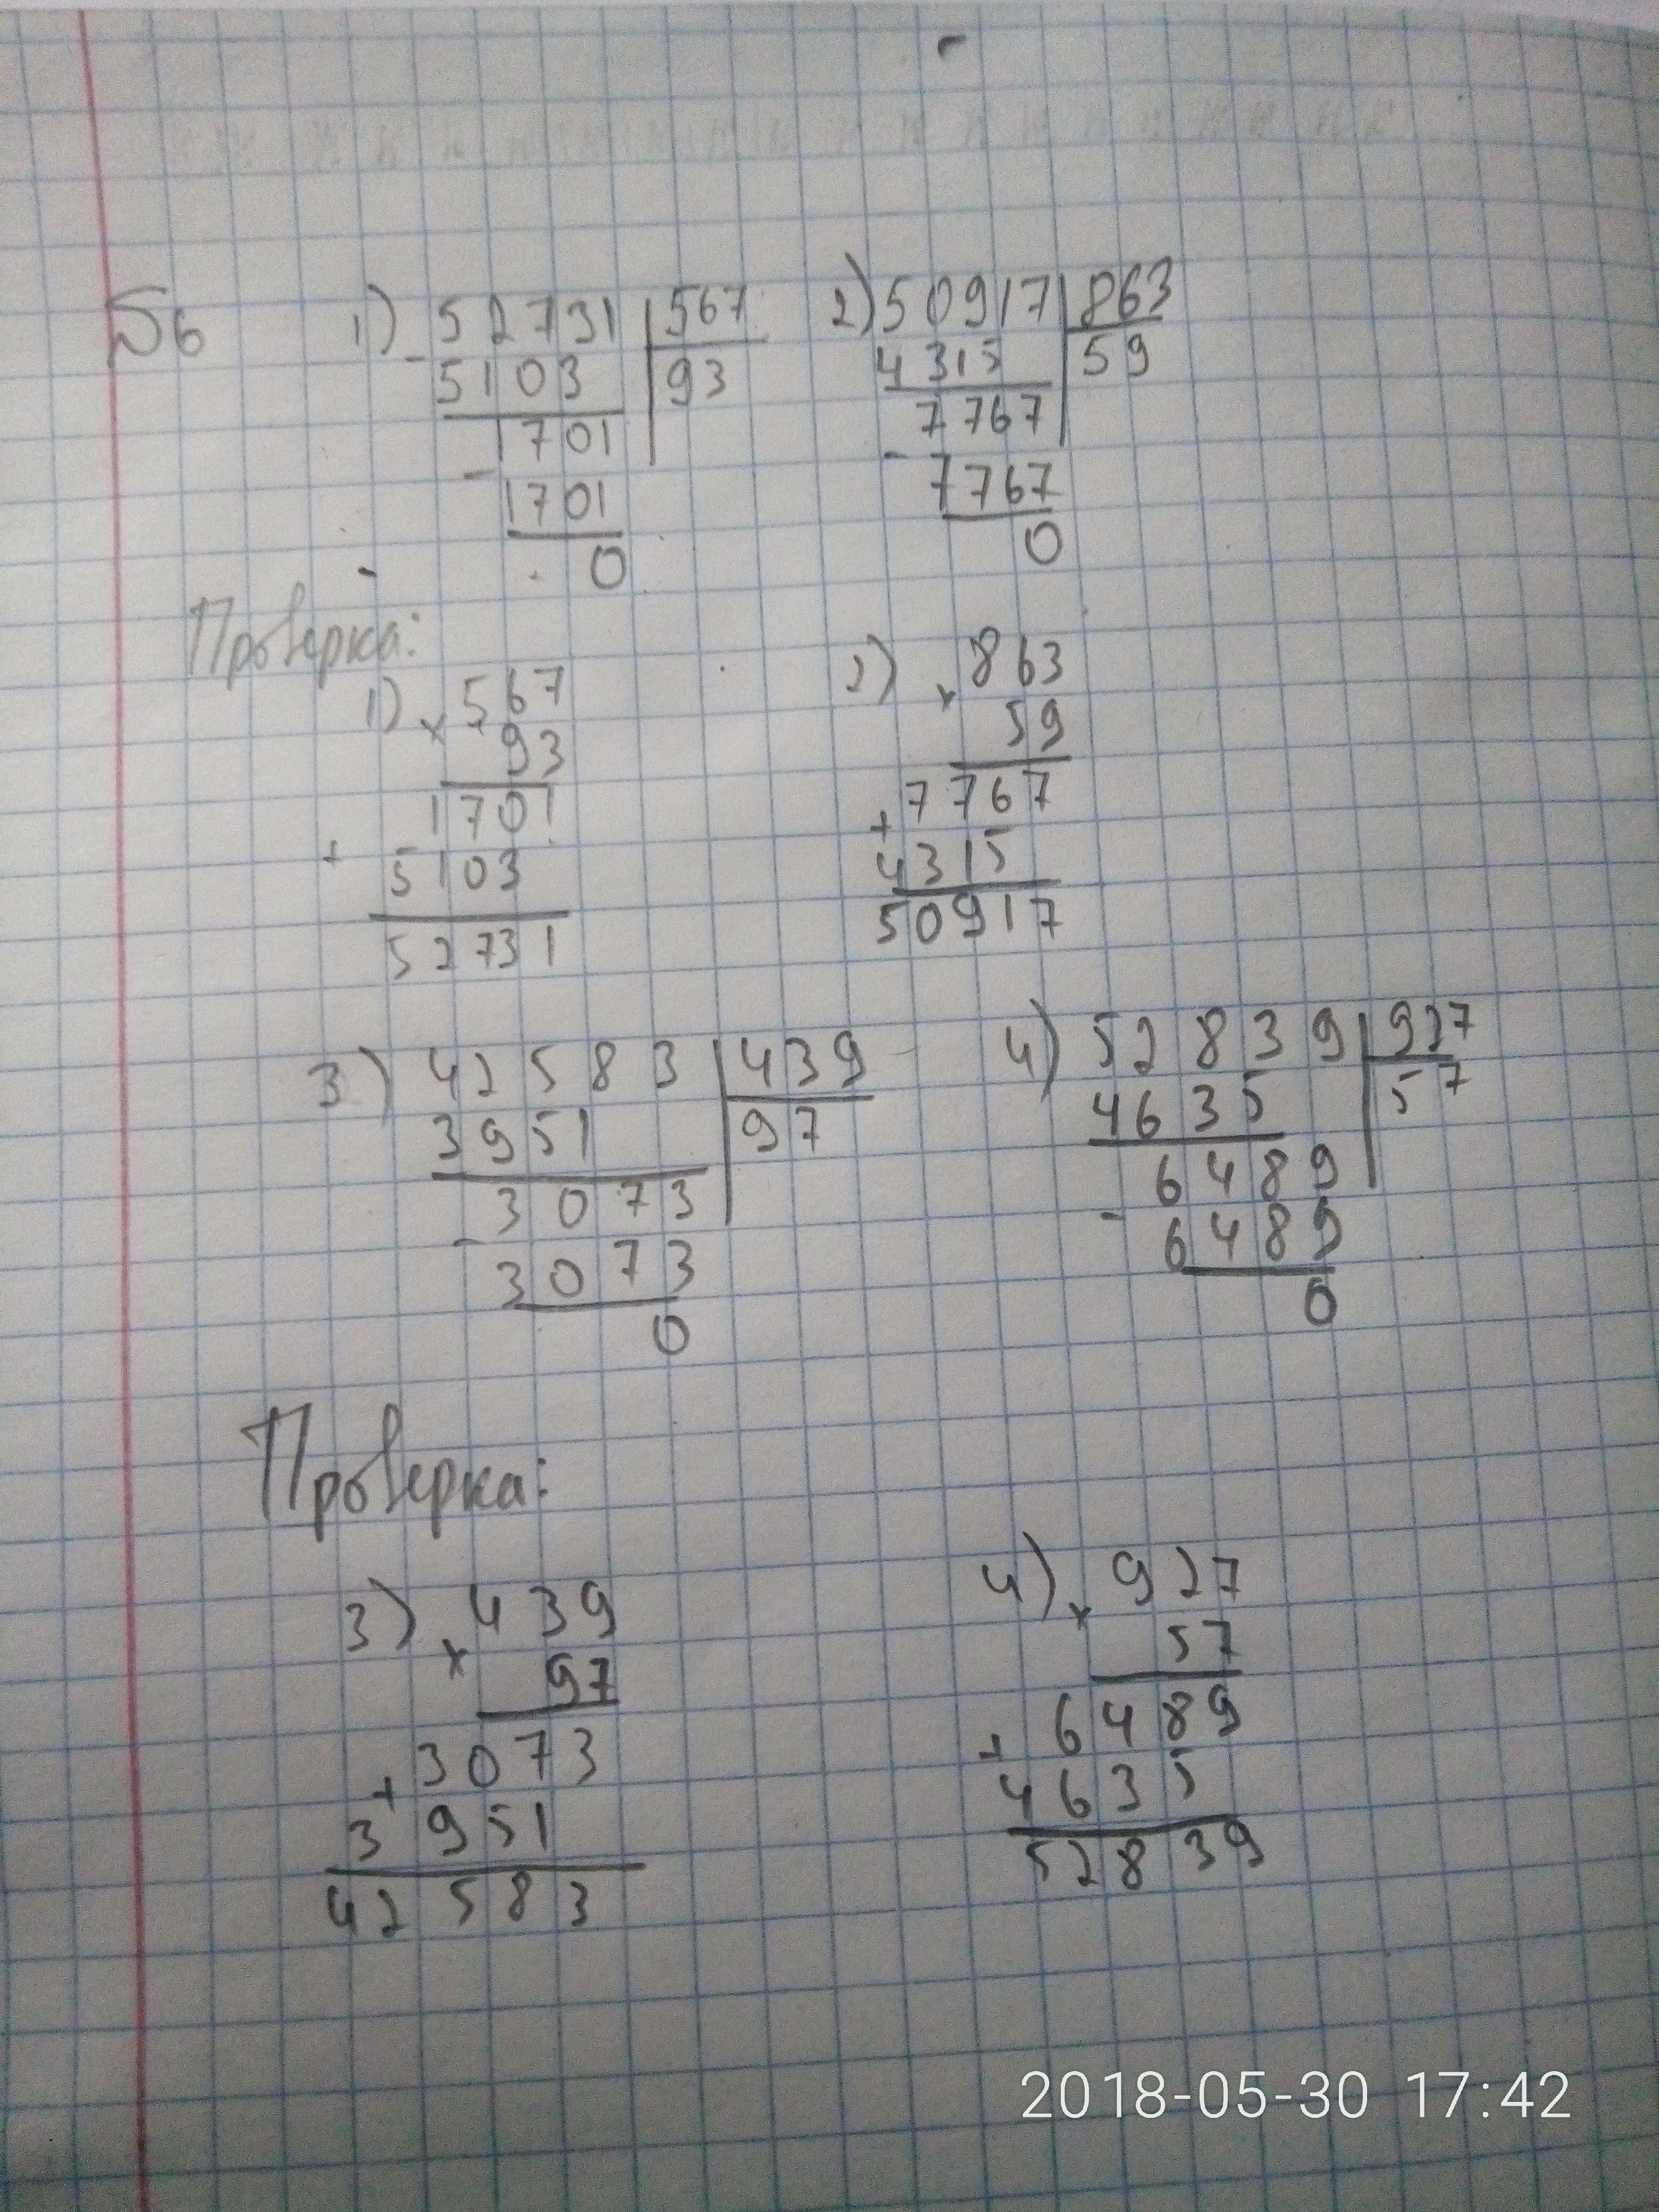 №6 1) 52731 | 567 2) 50917 | 863
- 5103 | 93 4315 | 59
1701 7767
- 1701 - 7767
0 0
Проверка:
1) × 567 2) × 863
93 59
1701 7767
+ 5103 + 4315
52731 50917
3) 42583 | 439 4) 52839 | 927
3951 | 97 4635 | 57
3073 6489
- 3073 - 6489
0 0
Проверка:
3) × 439 4) × 927
97 57
3073 6489
+ 3951 + 4635
42583 52839
2018-05-30 17:42